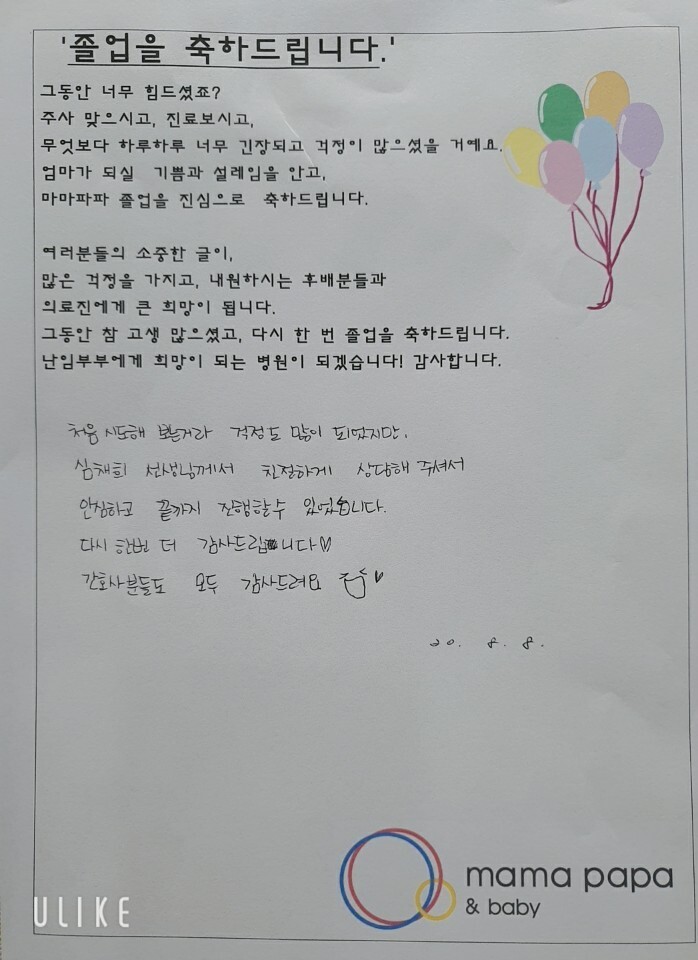 '졸업을 축하드립니다.'
그동안 너무 힘드셨죠?
주사 맞으시고, 진료보시고,
무엇보다 하루하루 너무 긴장되고 걱정이 많으셨을 거예요.
엄마가 되실 기쁨과 설레임을 안고,
마마파파 졸업을 진심으로 축하드립니다.
여러분들의 소중한 글이,
많은 걱정을 가지고, 내원하시는 후배분들과
의료진에게 큰 희망이 됩니다.
그동안 참 고생 많으셨고, 다시 한 번 졸업을 축하드립니다.
난임부부에게 희망이 되는 병원이 되겠습니다! 감사합니다.
처음 시도해 보는거라 걱정도 많이 되었지만,
심재희 선생님께서 친절하게 상담해 주셔서
안심하고 끝까지 진행할수 있었습니다.
다시 한번 더 감사드립니다♡
간호사분들도 모두 감사드려요 ♥
20. 8. 8.
mama papa
& baby
ULIKE